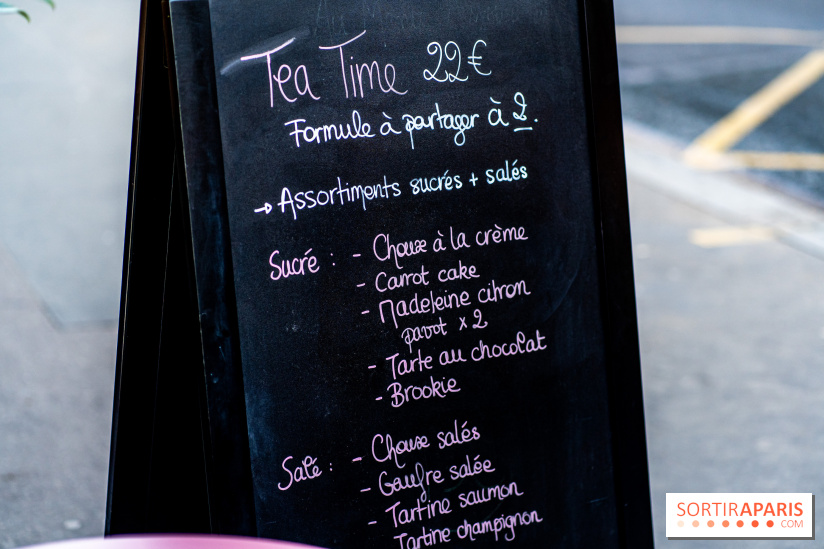 Tea Time 22€
Formule à partager à 2.
→ Assortiments sucrés + salés
Sucré : - Choux à la crème
- Carrot cake
- Madeleine citron
pavot x 2
- Tarte au chocolat
- Brookie
Salé : - Choux salés
- Gaufre salée
- Tartine saumon
Tartine champignon
SORTIRAPARIS
.COM